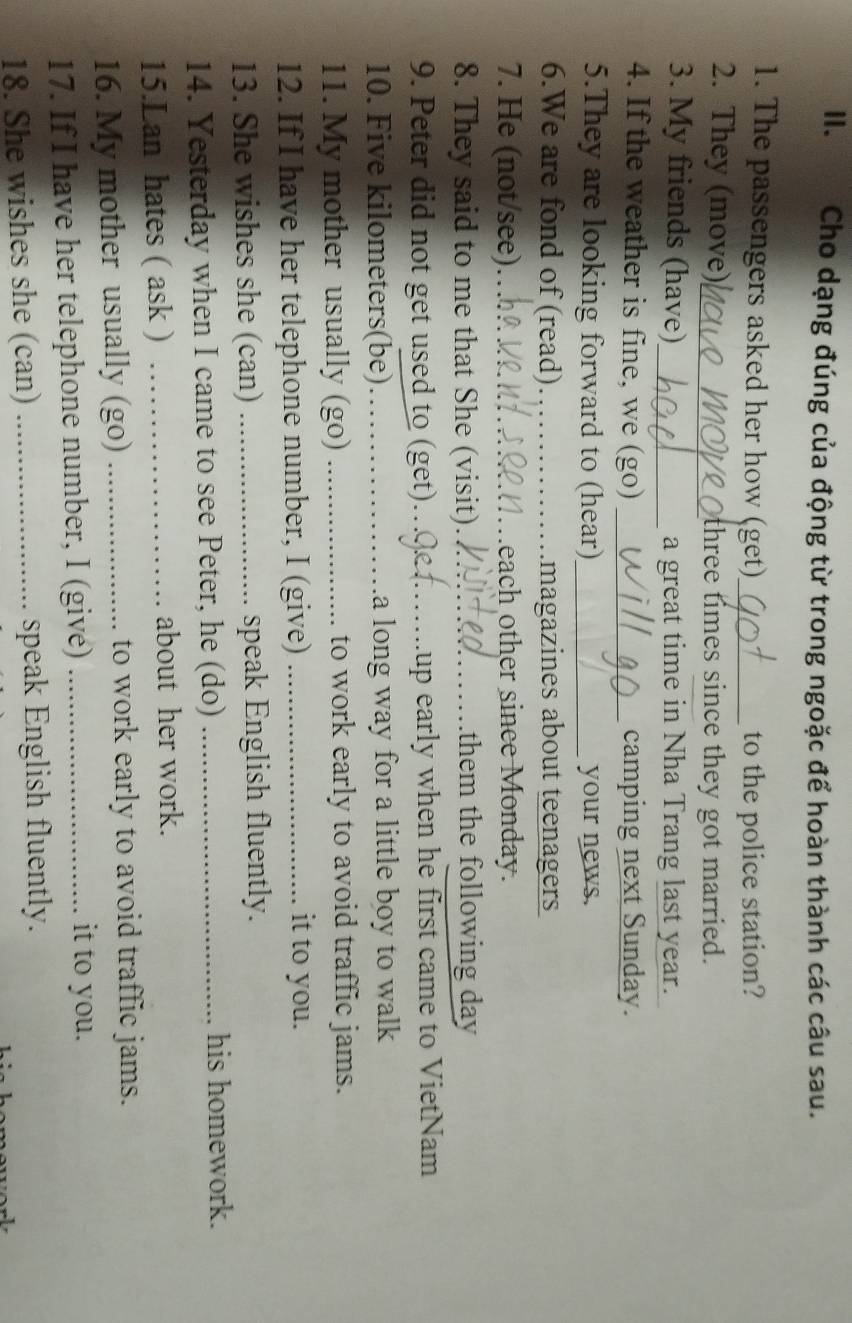 II. Cho dạng đúng của động từ trong ngoặc để hoàn thành các câu sau.
1. The passengers asked her how (get) got to the police station?
2. They (move) have moved three times since they got married.
3. My friends (have) had a great time in Nha Trang last year.
4. If the weather is fine, we (go) will go camping next Sunday.
5.They are looking forward to (hear)__________ your news,
6.We are fond of (read)...............magazines about teenagers
7. He (not/see)...haven't seen...each other since Monday.
8. They said to me that She (visit) visited them the following day
9. Peter did not get used to (get)...get......up early when he first came to VietNam
10. Five kilometers(be)...............a long way for a little boy to walk
11. My mother usually (go) .................. to work early to avoid traffic jams.
12. If I have her telephone number, I (give) .......................... it to you.
13. She wishes she (can) .................... speak English fluently.
14. Yesterday when I came to see Peter, he (do) ................................ his homework.
15.Lan hates ( ask ) .................... about her work.
16. My mother usually (go) .................. to work early to avoid traffic jams.
17. If I have her telephone number, I (give) .......................... it to you.
18. She wishes she (can) .................... speak English fluently.